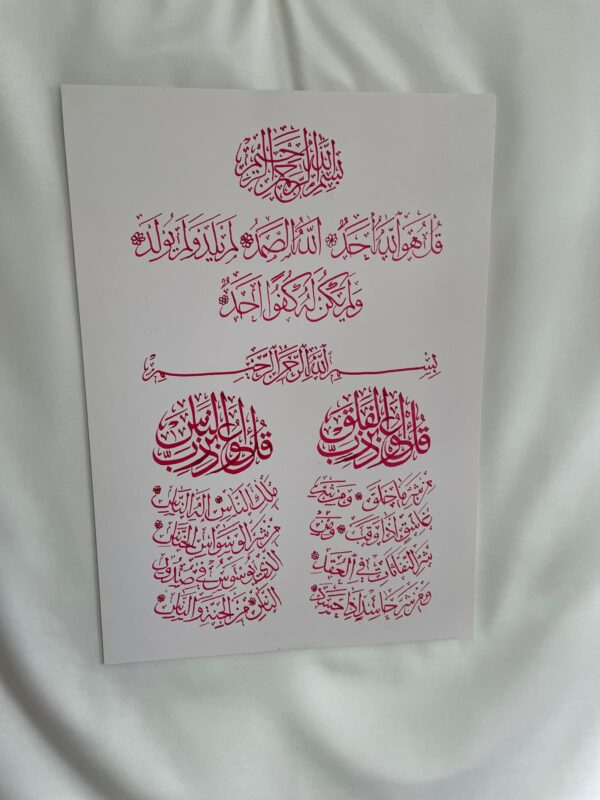 بِسْمِ اللَّهِ الرَّحْمٰنِ الرَّحِيمِ
قُلْ هُوَ اللَّهُ أَحَدٌ اللَّهُ الصَّمَدُ لَمْ يَلِدْ وَلَمْ يُولَدْ
وَلَمْ يَكُنْ لَهُ كُفُوًا أَحَدٌ
بِسْمِ اللَّهِ الرَّحْمٰنِ الرَّحِيمِ
قُلْ أَعُوذُ بِرَبِّ الْفَلَقِ
مِنْ شَرِّ مَا خَلَقَ وَمِنْ شَرِّ
غَاسِقٍ إِذَا وَقَبَ وَمِنْ
شَرِّ النَّفَّاثَاتِ فِي الْعُقَدِ
وَمِنْ شَرِّ حَاسِدٍ إِذَا حَسَدَ
قُلْ أَعُوذُ بِرَبِّ النَّاسِ
مَلِكِ النَّاسِ إِلٰهِ النَّاسِ
مِنْ شَرِّ الْوَسْوَاسِ الْخَنَّاسِ
الَّذِي يُوَسْوِسُ فِي صُدُورِ
النَّاسِ مِنَ الْجِنَّةِ وَالنَّاسِ